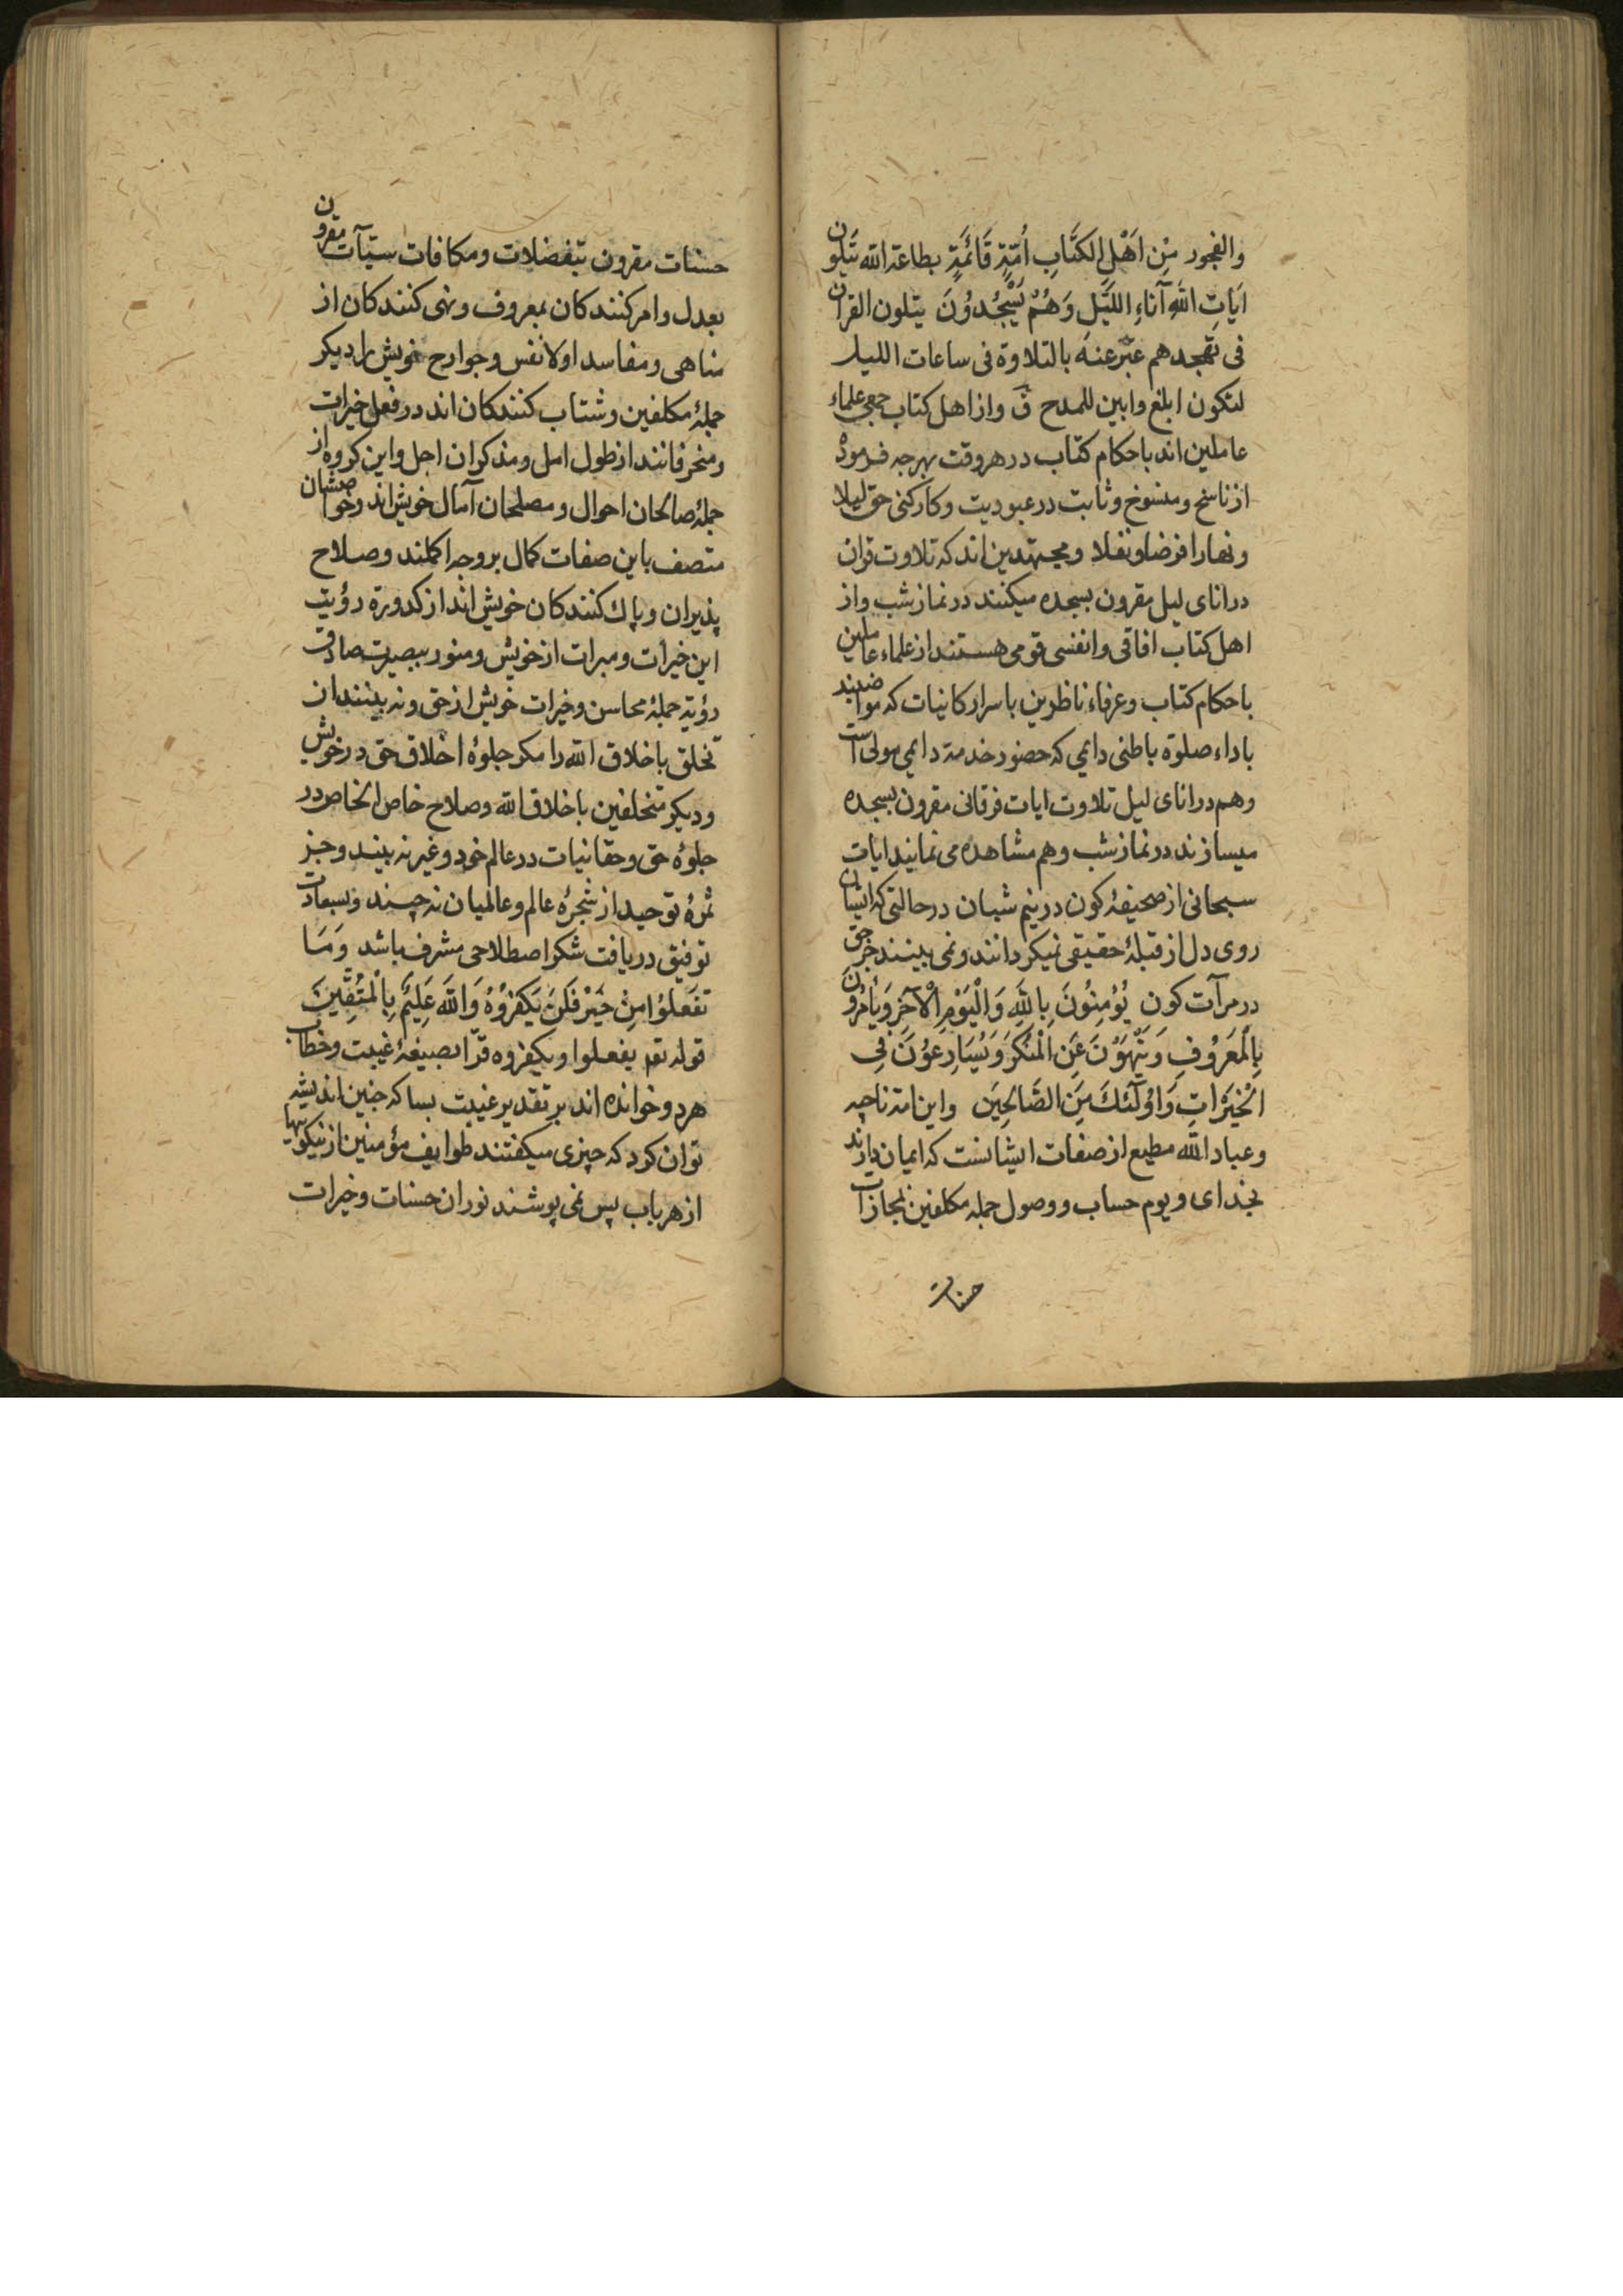 والفجور مِن اَهْلِ الكتَابِ اُمّةٌ قَائمَةٌ بطاعة الله يَتلُون
ايَاتِ اللهِ آنَاءِ اللّيَلِ وَهُمْ يَسْجُدُونَ يتلون القران
فى تهجدهم عبّر عنه بالتلاوة فى ساعات الليل
لتكون ابلغ وابين للمدح ق واز اهل كتاب جمعى علماء
عاملين اند باحكام كتاب در هر وقت بهر جه فرموده
از ناسخ ومنسوخ وثابت در عبوديت وكاركنى حق ليلا
ونهارا فرضا ونفلا ومجتهدين اند كه تلاوت قران
در اناى ليل مقرون بسجده ميكنند در نماز شب واز
اهل كتاب افاقى وانفسى قومى هستند از علماء عاملين
باحكام كتاب وعرفاء ناظرين باسرار كاينات كه مواضبند
باداء صلوة باطنى دايمى كه حضور خدمة دايمى مولى است
وهم در اناى ليل تلاوت ايات فرقانى مقرون بسجده
ميسازند در نماز شب وهم مشاهده مى نمايند ايات
سبحانى از صحيفۀ كون در نيم شبان در حالتى كه ايشان
روى دل از قبلۀ حقيقى نميكردانند ونمى بينند جز حق
در مرآت كون يُؤمِنُونَ بِاللهِ وَالْيَوْمِ الْآخِرِ وَيَأمُرُونَ
بِالْمَعرُوفِ وَيَنْهَوْنَ عَنِ الْمُنْكَرِ وَيُسَارِعوُنَ فِى
الْخَيْرَاتِ وَاوُلَئكَ مِنَ الصَّالِحِينَ واين امة ناجيه
وعباد الله مطيع از صفات ايشانست كه ايمان دارند
بخداى ويوم حساب ووصول جمله مكلفين بمجازات
حسنات
حسنات مقرون بتفضلات ومكافات سيّآت مقرون
بعدل وامر كنندكان بمعروف ونهى كنندكان از
مناهى ومفاسد اولا نفس وجوارح خويش را ديكر
جملۀ مكلفين وشتاب كنندكان اند در فعل خيرات
ومنحرفانند از طول امل ومذكران اجل واين كروه از
جملۀ صالحان احوال ومصلحان آمال خويش اند وخواصشان
متصف باين صفات كمال بروجه اكملند وصلاح
پذيران وپاك كنندكان خويش اند از كدورة رؤيت
اين خيرات ومبرات از خويش ومنور ببصيرت صادقت
رؤية جملۀ محاسن وخيرات خويش از حق ونه بينند ان
تخلق باخلاق الله را مكر جلوۀ اخلاق حق در خويش
وديكر متخلفين باخلاق الله وصلاح خاص الخاص در
جلوۀ حق وحقانيات در عالم خود وغير نه بيند وجز
ثمرۀ توحيد از شجرۀ عالم وعالميان نه چيند وبسعادت
توفيق دريافت شكر اصطلاحى مشرف باشد وَمَا
تَفعَلوُا مِنْ خَيْرٍ فَلَنْ يَكفرُوُهُ وَاللهُ عَلِيمٌ بِالْمُتَّقِينَ
قوله تعه يفعلوا ويكفروه قرّا بصيغۀ غيبت وخطاب
هردو خوانده اند بر تقدير غيبت بسا كه جنين انديشه
توان كرد كه چيزى ميكفتند طوايف مؤمنين از نيكوييها
از هر باب پس نمى پوشند نوران حسنات وخيرات